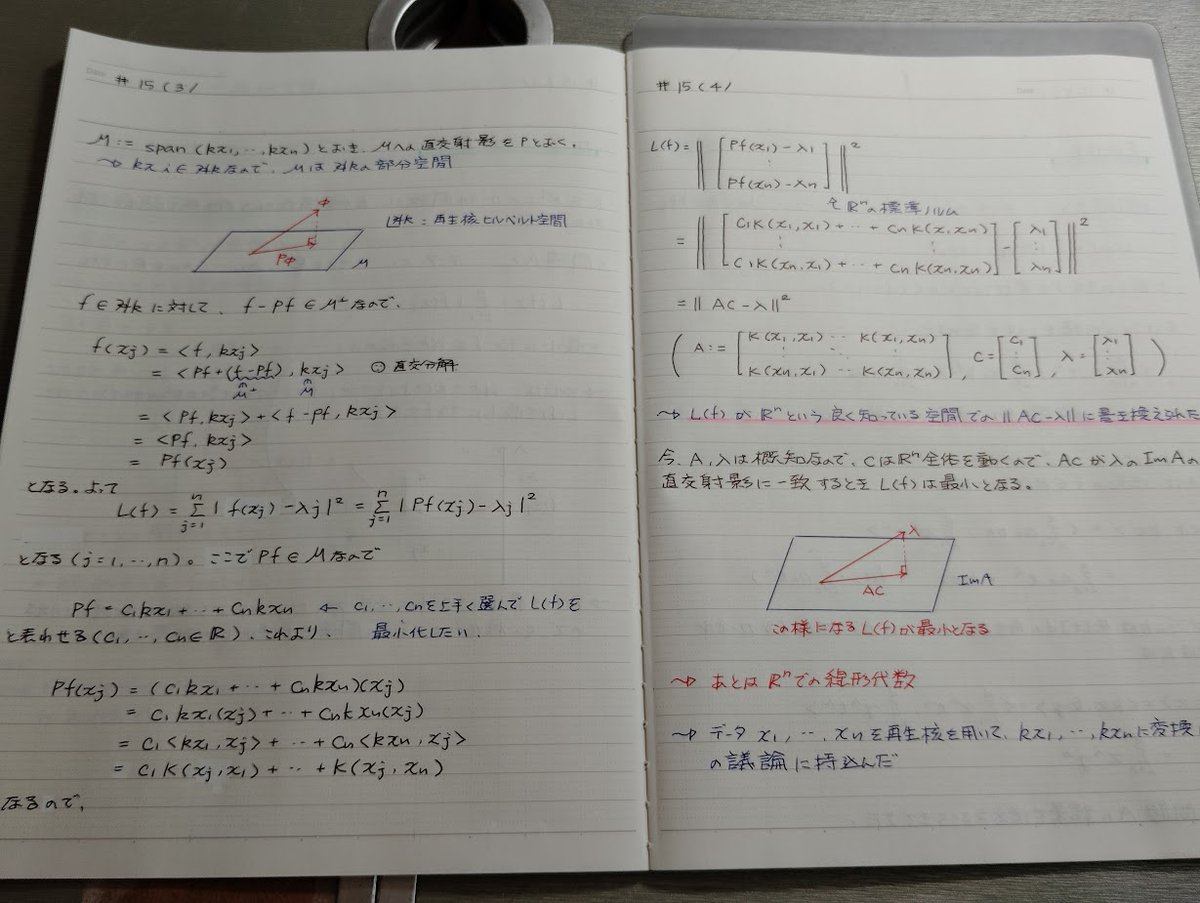 Date
# 15 (3)
M := span(kx1, ‥, kxn) とおき、Mへの直交射影をPとおく。
↝ kxi ∈ ℋk なので、Mはℋkの部分空間
φ
Pφ
M
ℋk : 再生核ヒルベルト空間
f ∈ ℋk に対して、f - Pf ∈ M⊥ なので、
f(xj) = <f, kxj>
= <Pf + (f - Pf), kxj> ∵ 直交分解
M⊥ M
= <Pf, kxj> + <f - Pf, kxj>
= <Pf, kxj>
= Pf(xj)
となる。よって
L(f) = Σ_{j=1}^{n} | f(xj) - λj |² = Σ_{j=1}^{n} | Pf(xj) - λj |²
となる (j=1, ‥, n)。ここで Pf ∈ M なので
Pf = c1kx1 + ‥ + cnkxn ← c1, ‥, cnを上手く選んで L(f)を
と表わせる (c1, ‥, cn ∈ R)、これより、 最小化したい.
Pf(xj) = (c1kx1 + ‥ + cnkxn)(xj)
= c1kx1(xj) + ‥ + cnkxn(xj)
= c1<kx1, xj> + ‥ + cn<kxn, xj>
= c1K(xj, x1) + ‥ + K(xj, xn)
なるので、
# 15 (4)
Date
L(f) = ‖ [ Pf(x1) - λ1 ⋮ Pf(xn) - λn ] ‖²
↑ Rⁿの標準ノルム
= ‖ [ c1K(x1, x1) + ‥ + cnK(x1, xn) ⋮ ⋮ c1K(xn, x1) + ‥ + cnK(xn, xn) ] - [ λ1 ⋮ λn ] ‖²
= ‖ AC - λ ‖²
( A := [ K(x1, x1) ‥ K(x1, xn) ⋮ ⋮ K(xn, x1) ‥ K(xn, xn) ] , C = [ c1 ⋮ cn ] , λ = [ λ1 ⋮ λn ] )
↝ L(f) が Rⁿ という良く知っている空間での ‖ AC - λ ‖ に書き換えられた
今、A, λは概知なので、CはRⁿ全体を動くので、ACがλのImAの
直交射影に一致するとき L(f)は最小となる。
λ
AC
ImA
この様になる L(f)が最小となる
↝ あとは Rⁿでの線形代数
↝ データ x1, ‥, xnを再生核を用いて、kx1, ‥, kxnに変換
の議論に持込んだ